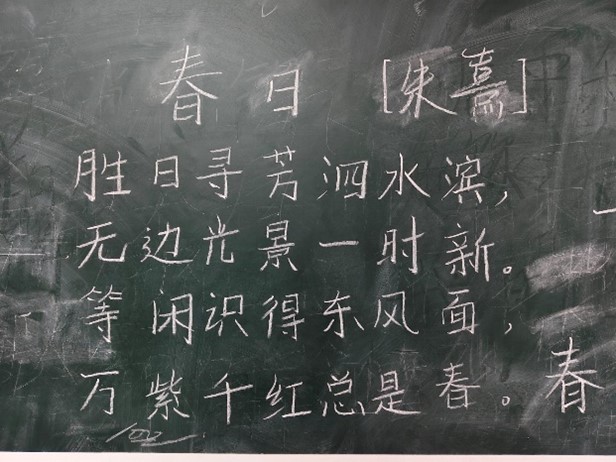 春日 [朱熹]
胜日寻芳泗水滨,
无边光景一时新。
等闲识得东风面,
万紫千红总是春。
春